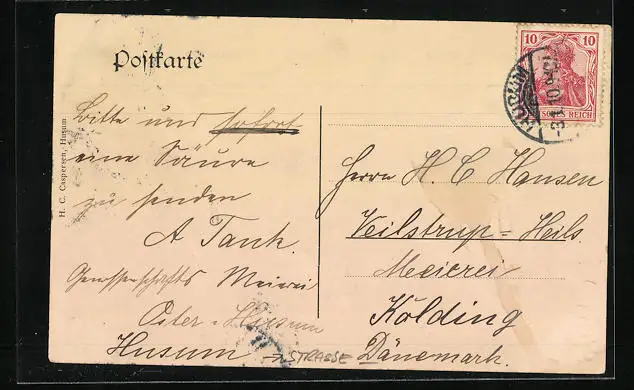 Postkarte
10 10
DEUTSCHES REICH
HUSUM
H. C. Caspersen, Husum
Bitte uns sofort
eine Säure
zu senden
A Tank.
Genossenschafts Meierei
Oster-Husum
Husum
→ STRASSE
Herrn H. C Hansen
Veilstrup-Hels
Meierei
Kolding
Dänemark.